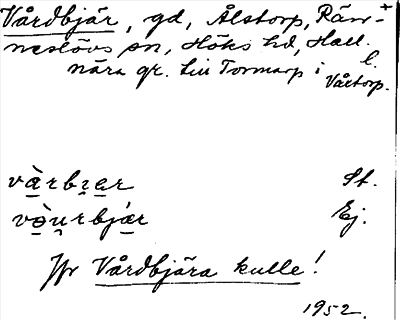 Vårdbjär, gd, Ålstorp, Rän-
neslövs sn, Höks hd, Hall.
nära gr. till Tormarp i l. Vårtorp.
vàrbɪær St.
vòurbjær Ej.
Jfr Vårdbjära kulle!
1952.